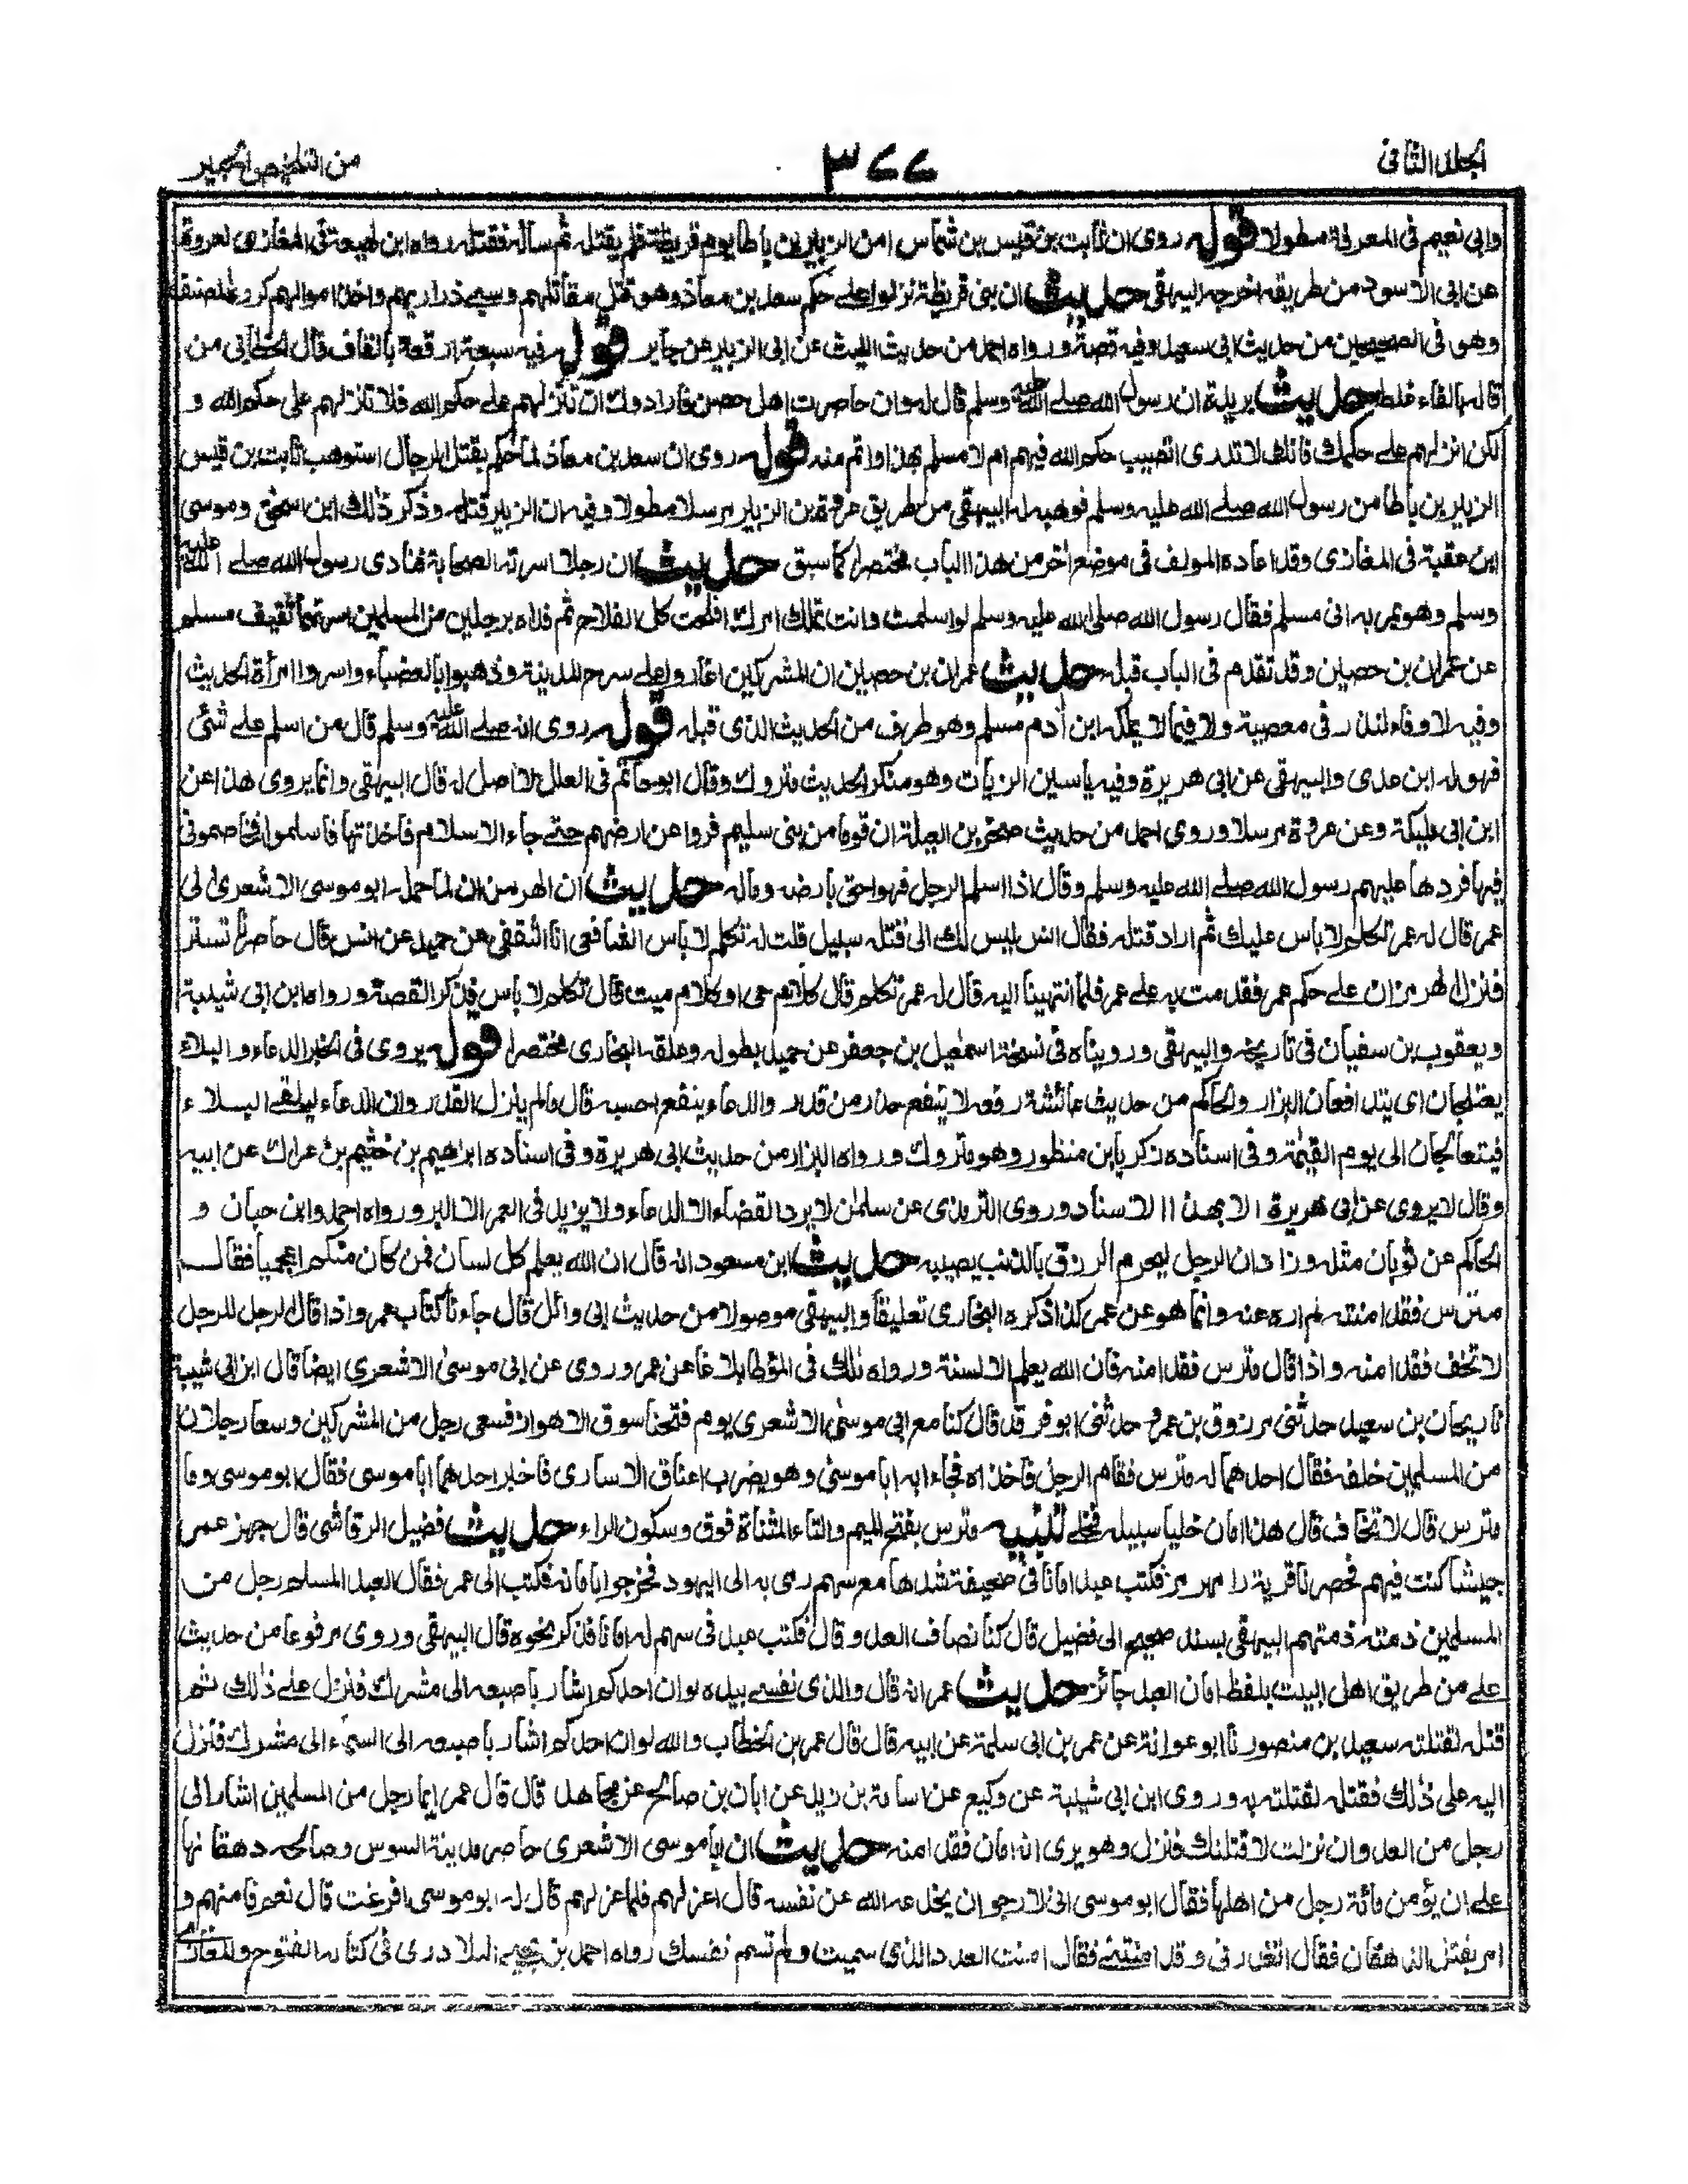 الجلد الثانی
٣٧٧
من التلخيص الحبير
وابى نعيم فى المعرفة مطولا قوله روى ان ثابت بن قيس بن شماس امن الزبير بن باطا يوم قريظة فلم يقتله ثم سأله فقتله رواه ابن لهيعة فى المغازى لعروة
عن ابى الاسود من طريقه اخرجه البيهقى حديث ان بنى قريظة نزلوا على حكم سعد بن معاذ وهو قتل مقاتلهم وسبى ذراريهم واخذ اموالهم كرره المصنف
وهو فى الصحيحين من حديث ابى سعيد وفيه قصة ورواه احمد من حديث الليث عن ابى الزبير عن جابر قوله فيه سبعة ارقعة بالقاف قال الخطابى من
قاله بالفاء غلط حديث بريدة ان رسول الله صلى الله عليه وسلم قال له وان حاصرت اهل حصن فارادوك ان تنزلهم على حكم الله فلا تنزلهم على حكم الله و
لكن انزلهم على حكمك فانك لا تدرى اتصيب حكم الله فيهم ام لا مسلم بهذا واتم منه قوله روى ان سعد بن معاذ لما حكم بقتل الرجال استوهب ثابت بن قيس
الزبير بن باطا من رسول الله صلى الله عليه وسلم فوهبه له البيهقى من طريق عروة بن الزبير مرسلا مطولا وفيه ان الزبير قتله وذكر ذلك ابن اسحق وموسى
ابن عقبة فى المغازى وقد اعاده المولف فى موضع آخر من هذا الباب مختصرا كما سبق حديث ان رجلا اسرته الصحابة فنادى رسول الله صلى الله عليه
وسلم وهو يمر به انى مسلم فقال رسول الله صلى الله عليه وسلم لو اسلمت وانت تملك امرك افلحت كل الفلاح ثم فداه برجلين من المسلمين اسرتهما ثقيف مسلم
عن عمران بن حصين وقد تقدم فى الباب قبله حديث عمران بن حصين ان المشركين اغاروا على سرح المدينة وذهبوا بالعضباء واسروا امرأة الحديث
وفيه لا وفاء لنذر فى معصية ولا فيما لا يملكه ابن آدم مسلم وهو طرف من الحديث الذى قبله قوله روى انه صلى الله عليه وسلم قال من اسلم على شئ
فهو له ابن عدى والبيهقى عن ابى هريرة وفيه ياسين الزيات وهو منكر الحديث متروك وقال ابو حاتم فى العلل لا اصل له قال البيهقى وانما يروى هذا عن
ابن ابى مليكة وعن عروة مرسلا وروى احمد من حديث صخر بن العيلة ان قوما من بنى سليم فروا عن ارضهم حتى جاء الاسلام فاخذتها فاسلموا فخاصمونى
فيها فردها عليهم رسول الله صلى الله عليه وسلم وقال اذا اسلم الرجل فهو احق بارضه وماله حديث ان الهرمزان لما حمله ابو موسى الاشعرى الى
عمر قال له عمر تكلم لا باس عليك ثم اراد قتله فقال انس ليس لك الى قتله سبيل قلت له تكلم لا باس الشافعى انا الثقفى عن حميد عن انس قال حاصرنا تستر
فنزل الهرمزان على حكم عمر فقدمت به على عمر فلما انتهينا اليه قال له عمر تكلم قال كلام حى او كلام ميت قال تكلم لا باس فذكر القصة ورواه ابن ابى شيبة
ويعقوب بن سفيان فى تاريخه والبيهقى ورويناه فى نسخة اسمعيل بن جعفر عن حميد بطوله وعلقه البخارى مختصرا قوله يروى فى الخبر الدعاء والبلاء
يعتلجان اى يتدافعان البزار والحاكم من حديث عائشة رفعه لا ينفع حذر من قدر والدعاء ينفع احسبه قال ما لم ينزل القدر وان الدعاء ليلقى البلاء
فيتعالجان الى يوم القيمة وفى اسناده زكريا بن منظور وهو متروك ورواه البزار من حديث ابى هريرة وفى اسناده ابراهيم بن خثيم بن عراك عن ابيه
وقال لا يروى عن ابى هريرة الا بهذا الاسناد وروى الترمذى عن سلمن لا يرد القضاء الا الدعاء ولا يزيد فى العمر الا البر ورواه احمد وابن حبان و
الحاكم عن ثوبان مثله وزاد ان الرجل ليحرم الرزق بالذنب يصيبه حديث ابن مسعود انه قال ان الله يعلم كل لسان فمن كان منكم اعجميا فقال
مترس فقد امنته لم اره عنه وانما هو عن عمر كذا ذكره البخارى تعليقا والبيهقى موصولا من حديث ابى وائل قال جاءنا كتاب عمر واذا قال الرجل للرجل
لا تخف فقد امنه واذا قال مترس فقد امنه فان الله يعلم الالسنة ورواه مالك فى المؤطا بلاغا عن عمر وروى عن ابى موسى الاشعرى ايضا قال ابن ابى شيبة
نا ريحان بن سعيد حدثنى مرزوق بن عمرو حدثنى ابو فرقد قال كنا مع ابى موسى الاشعرى يوم فتحنا سوق الاهواز فسعى رجل من المشركين وسعا رجلان
من المسلمين خلفه فقال احدهما له مترس فقام الرجل فاخذاه فجاءا به ابا موسى وهو يضرب اعناق الاسارى فاخبر احدهما ابا موسى فقال ابو موسى وما
مترس قال لا تخاف قال هذا امان خليا سبيله فخلى تنبيه مترس بفتح الميم والتاء المثناة فوق وسكون الراء حديث فضيل الرقاشى قال جهز عمر
جيشا كنت فيهم فحصرنا قرية رامهرمز فكتب عبد امانا فى صحيفة شدها مع سهم رمى به الى اليهود فخرجوا بامانه فكتب الى عمر فقال العبد المسلم رجل من
المسلمين ذمته ذمتهم البيهقى بسند صحيح الى فضيل قال كنا نصاف العدو قال فكتب عبد فى سهم له امانا فذكر نحوه قال البيهقى وروى مرفوعا من حديث
على من طريق اهل البيت بلفظ امان العبد جائز حديث عمر انه قال والذى نفسى بيده لو ان احدكم اشار باصبعه الى مشرك فنزل على ذلك ثم
قتله لقتلته سعيد بن منصور نا ابو عوانة عن عمر بن ابى سلمة عن ابيه قال قال عمر بن الخطاب والله لو ان احدكم اشار باصبعه الى السماء الى مشرك فنزل
اليه على ذلك فقتله لقتلته به وروى ابن ابى شيبة عن وكيع عن اسامة بن زيد عن ابان بن صالح عن مجاهد قال قال عمر ايما رجل من المسلمين اشار الى
رجل من العدو ان نزلت لاقتلنك فنزل وهو يرى انه امان فقد امنه حديث ان ابا موسى الاشعرى حاصر مدينة السوس وصالحه دهقانها
على ان يؤمن مائة رجل من اهلها فقال ابو موسى انى لارجو ان يخدعه الله عن نفسه قال اعزلهم فلما عزلهم قال له ابو موسى افرغت قال نعم فامنهم و
امر بقتل الدهقان فقال اتغدرنى وقد امنتنى فقال امنت العدد الذى سميت ولم تسم نفسك رواه احمد بن يحيى البلاذرى فى كتاب الفتوح والمغازى